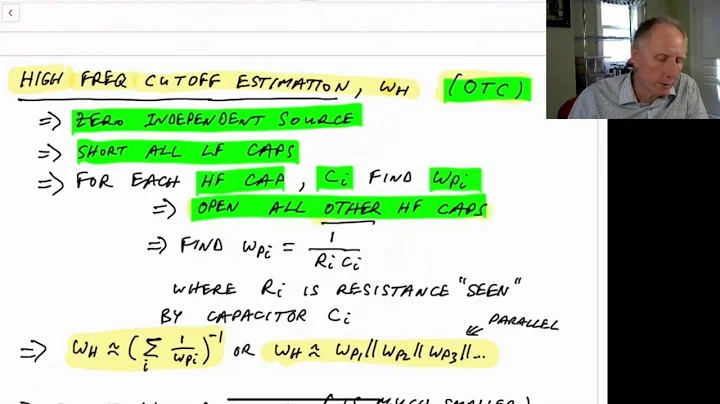 HIGH FREQ CUTOFF ESTIMATION, ωH (OTC)
=> ZERO INDEPENDENT SOURCE
=> SHORT ALL LF CAPS
=> FOR EACH HF CAP, Ci FIND ωPi
=> OPEN ALL OTHER HF CAPS
=> FIND ωPi = 1 / RiCi
WHERE Ri IS RESISTANCE "SEEN"
BY CAPACITOR Ci
PARALLEL
=> ωH ≈ (∑i 1/ωPi)^-1 OR ωH ≈ ωP1 || ωP2 || ωP3 || ...
MUCH SMALLER)